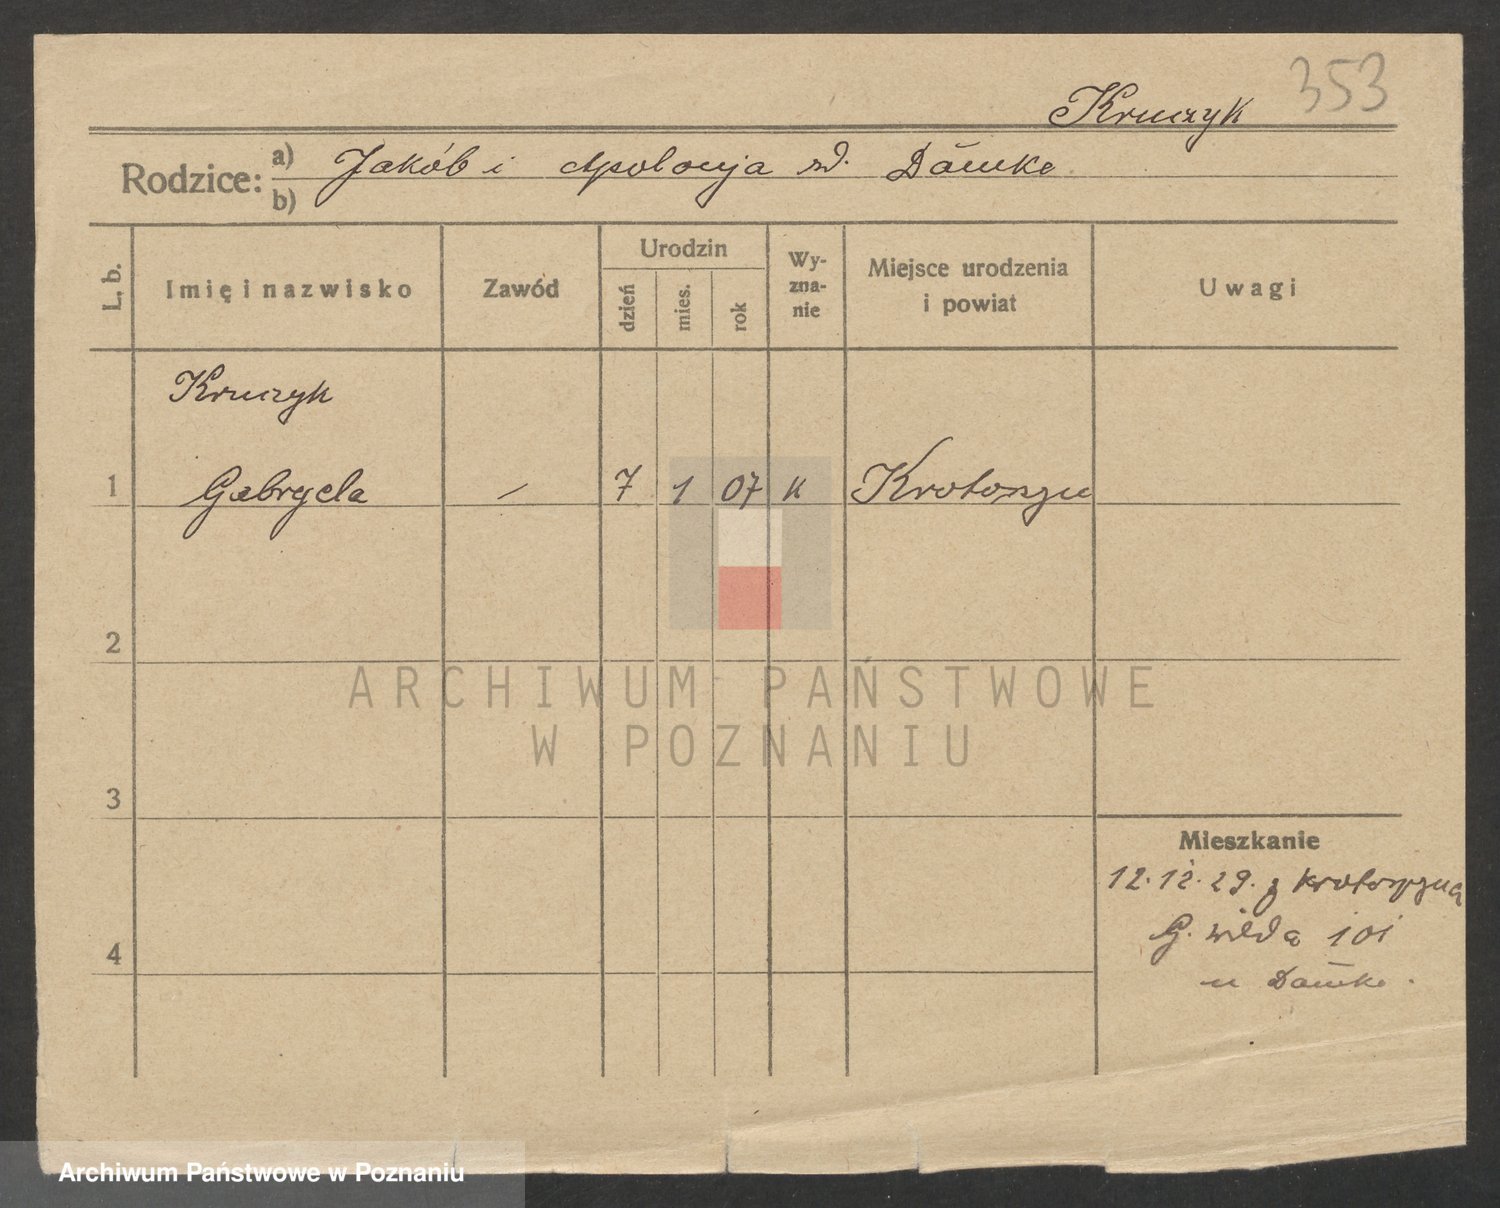 353
Kruczyk
Rodzice: a) Jakób i Apolonja
b)
L. b.
Imię i nazwisko
Zawód
Urodzin
dzień
mies.
rok
Wy-
zna-
nie
Miejsce urodzenia
i powiat
Uwagi
Kruczyk
1 Gabryela — 7 1 07 k Krotoszyn
2
3
4
Mieszkanie
12.12.29. z Krotoszyna
G. Wilda 101
u
ARCHIWUM PAŃSTWOWE
W POZNANIU
Archiwum Państwowe w Poznaniu